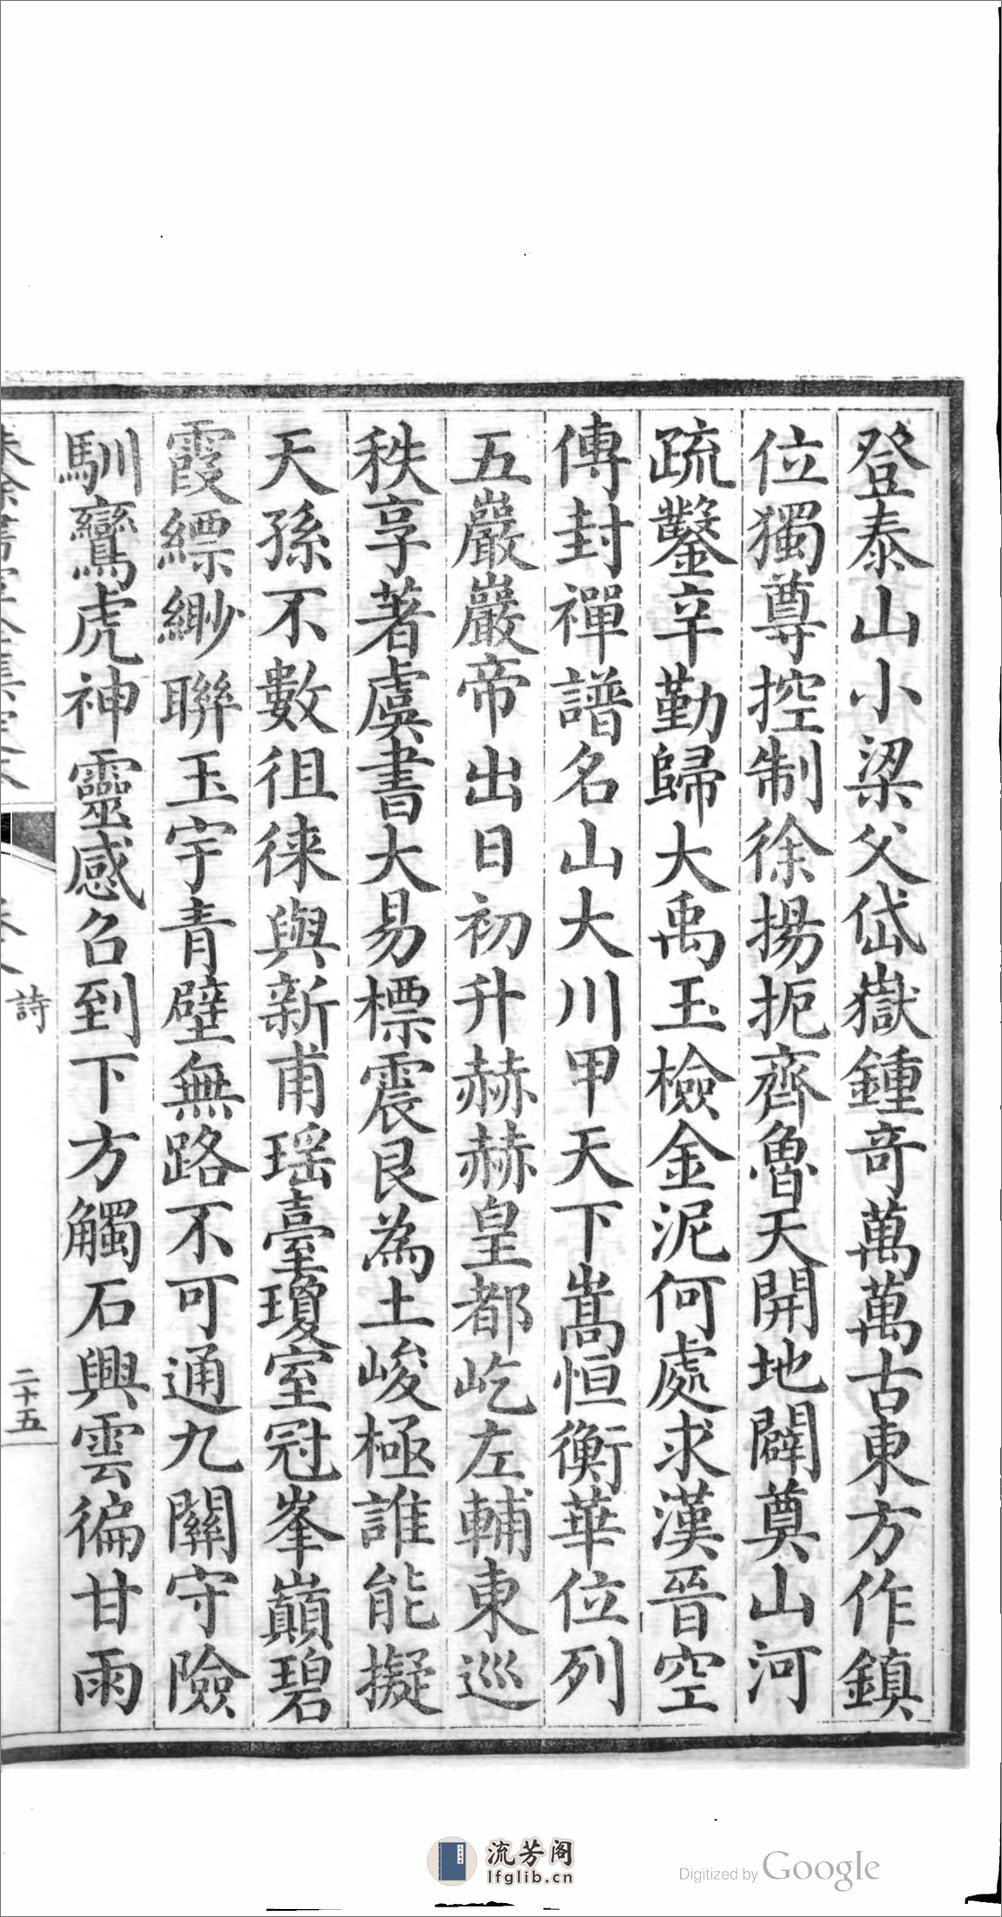 登泰山小梁父岱嶽鍾奇萬萬古東方作鎮
位獨尊控制徐揚扼齊魯天開地闢奠山河
疏鑿辛勤歸大禹玉檢金泥何處求漢晉空
傳封禪譜名山大川甲天下嵩恒衡華位列
五巖巖帝出日初升赫赫皇都屹左輔東巡
秩享著虞書大易標震艮為土峻極誰能擬
天孫不數徂徠與新甫瑶臺瓊室冠峯巔碧
霞縹緲聯玉宇青壁無路不可通九關守險
馴鸞虎神靈感召到下方觸石興雲徧甘雨
詩
二十五
流芳阁
lfglib.cn
Digitized by Google